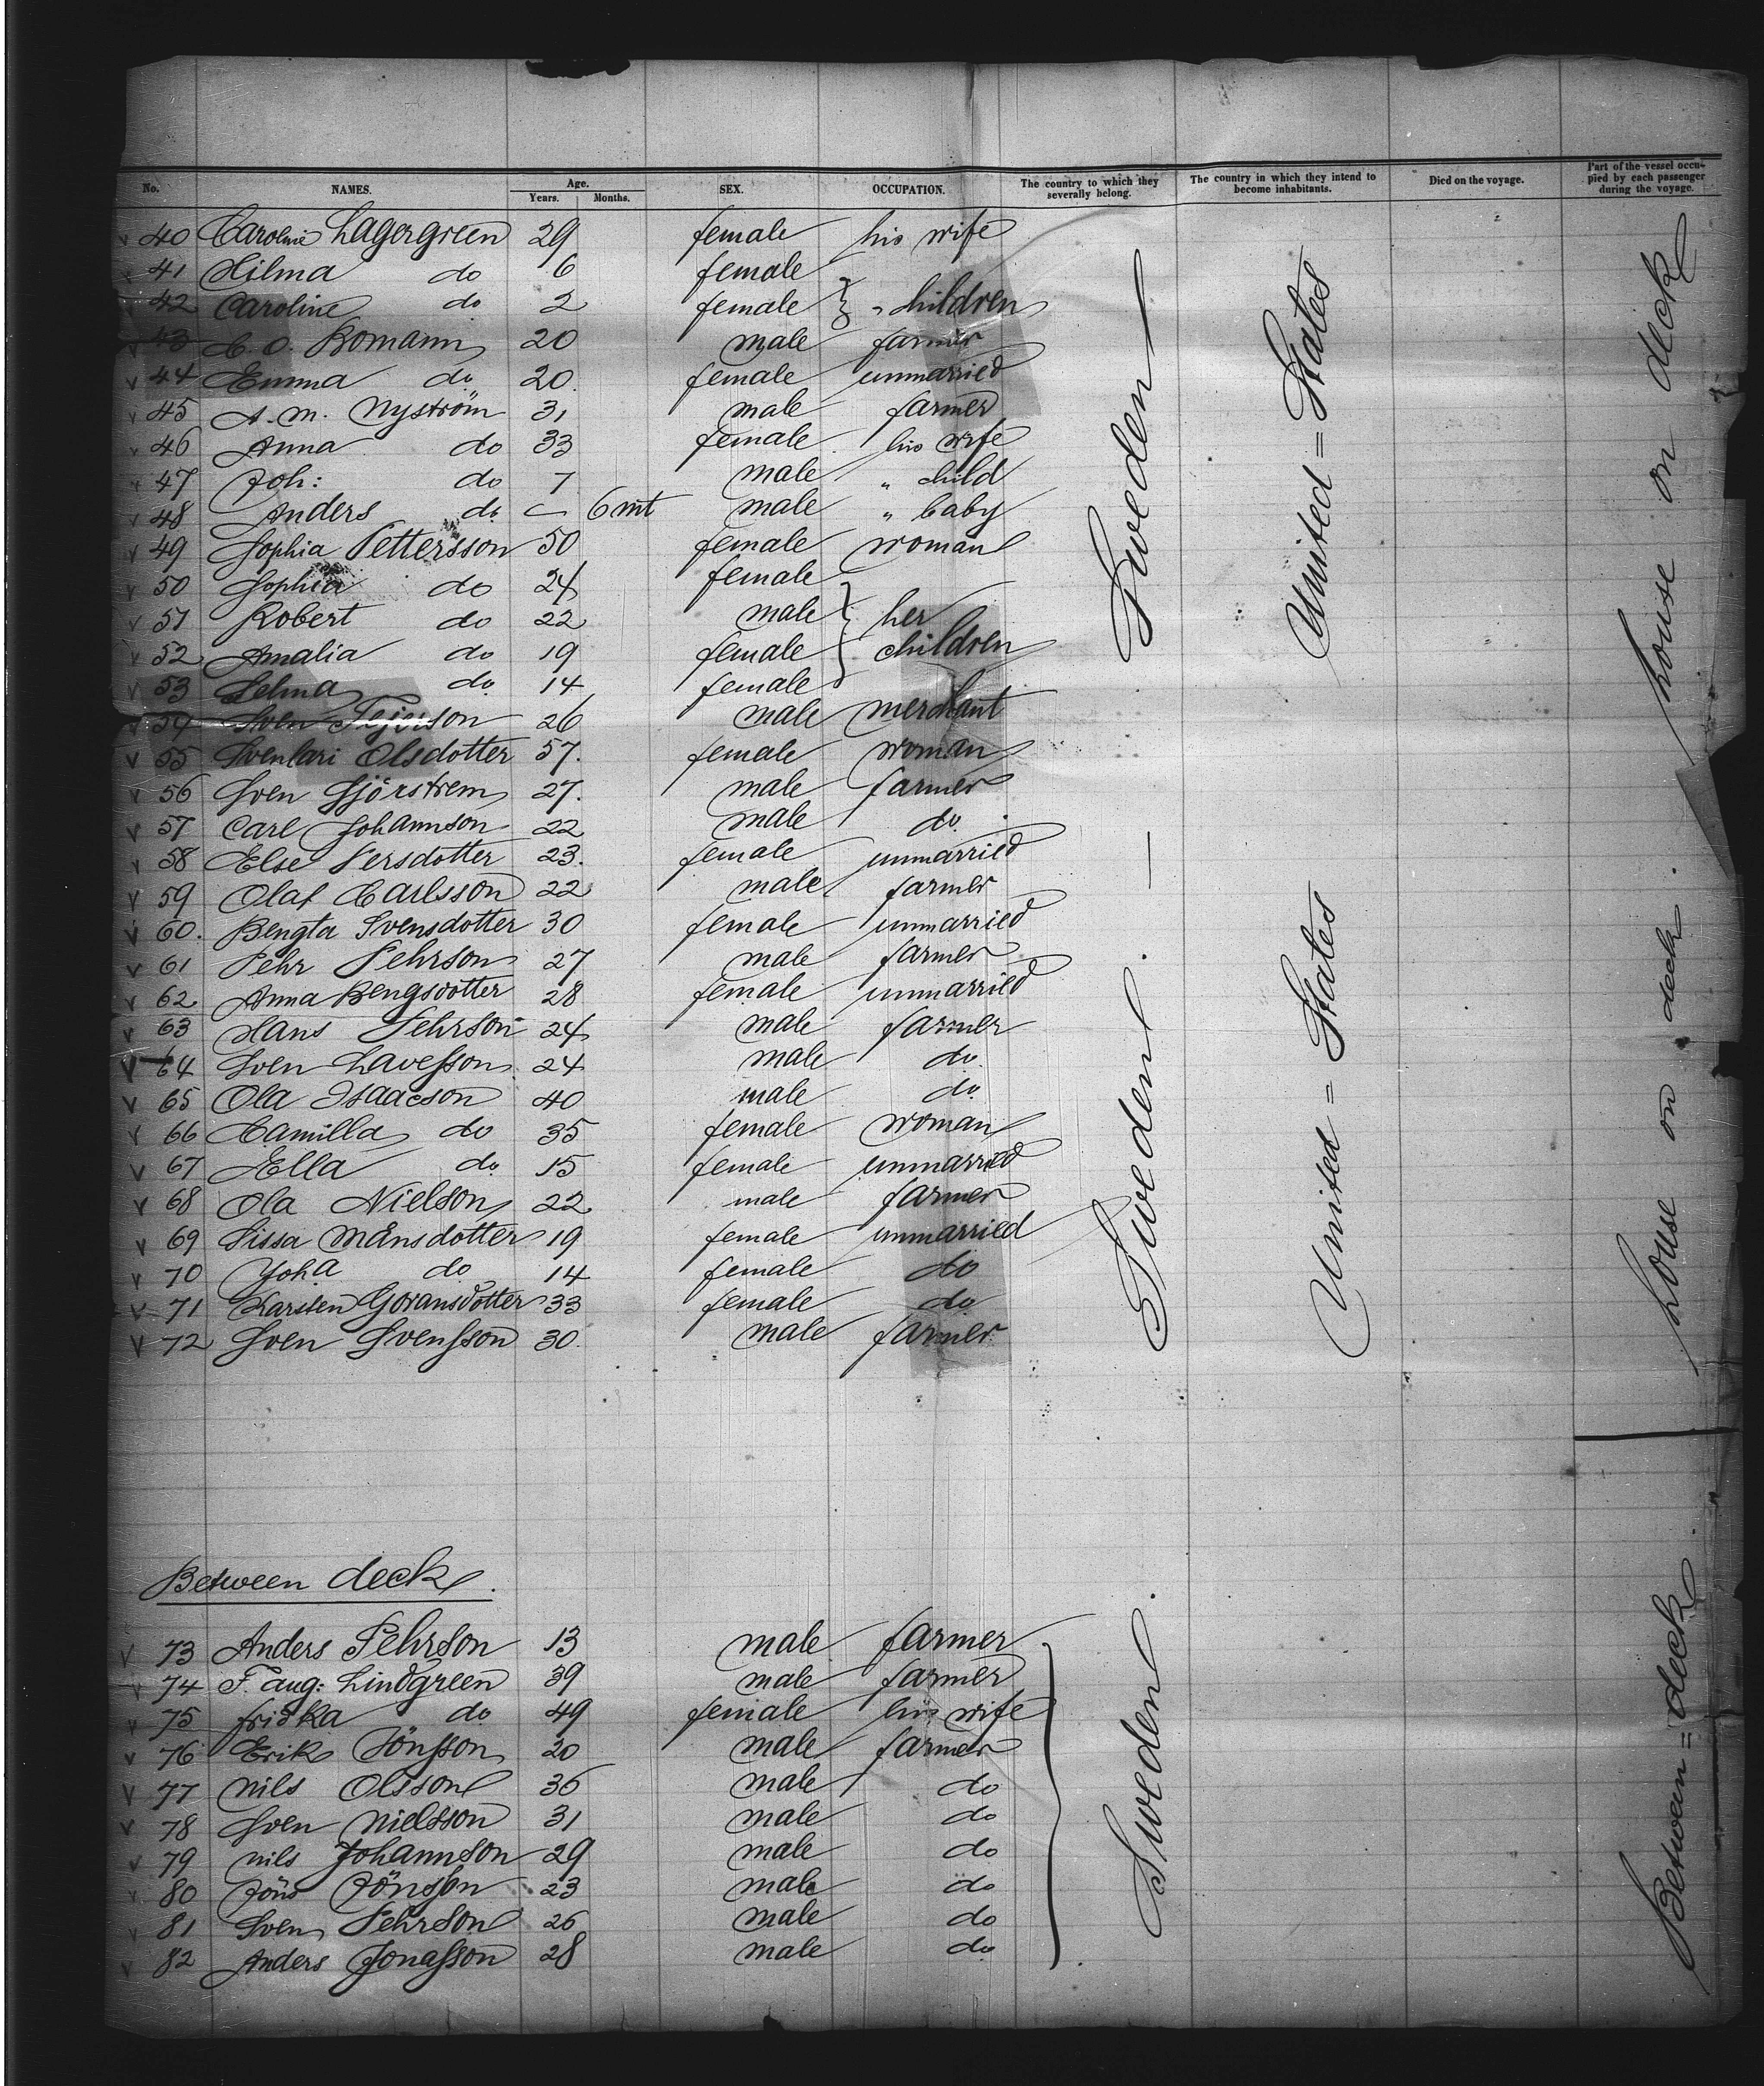 No. NAMES. Age. Years. Months. SEX. OCCUPATION. The country to which they severally belong. The country in which they intend to become inhabitants. Died on the voyage. Part of the vessel occupied by each passenger during the voyage.
40 Caroline Lagergreen 29 female his wife
41 Hilma do 6 female
42 Caroline do 2 female " children
43 C. O. Bomann 20 male farmer
44 Emma do 20. female unmarried
45 A. M. Nyström 31 male farmer
46 Anna do 33 female his wife
47 Joh: do 7 male " child
48 Anders do — 6 mt male " baby
49 Sophia Pettersson 50 female woman
50 Sophia do 24 female
51 Robert do 22 male her
52 Amalia do 19 female children
53 Selma do 14 female
54 Sven 26 male merchant
55 Olsdotter 57. female woman
56 Sven Sjörstrem 27. male farmer
57 Carl Johannson 22 male do
58 Else Persdotter 23. female unmarried
59 Olaf Carlsson 22 male farmer
60. Bengta Svensdotter 30 female unmarried
61 Pehr Pehrson 27 male farmer
62 Anna Bengsdotter 28 female unmarried
63 Hans Pehrson 24 male farmer
64 Sven Lavesson 24 male do
65 Ola Isaacson 40 male do
66 Camilla do 35 female woman
67 Ella do 15 female unmarried
68 Ola Nielson 22 male farmer
69 Sissa Månsdotter 19 female unmarried
70 Joha do 14 female do
71 Karsten Goransdotter 33 female do
72 Sven Svensson 30. male farmer
Sweden —
Sweden.
United = States
United = States
house on deck
house on deck.
Between deck.
73 Anders Pehrson 13 male farmer
74 F. aug: Lindgreen 39 male farmer
75 fridka do 49 female his wife
76 Erik Jönsson 20 male farmer
77 Nils Olsson 36 male do
78 Sven Nielsson 31 male do
79 Nils Johannson 29 male do
80 Jöns Jönsson 23 male do
81 Sven Pehrson 26 male do
82 Anders Jonasson 28 male do
Sweden.
Between = deck